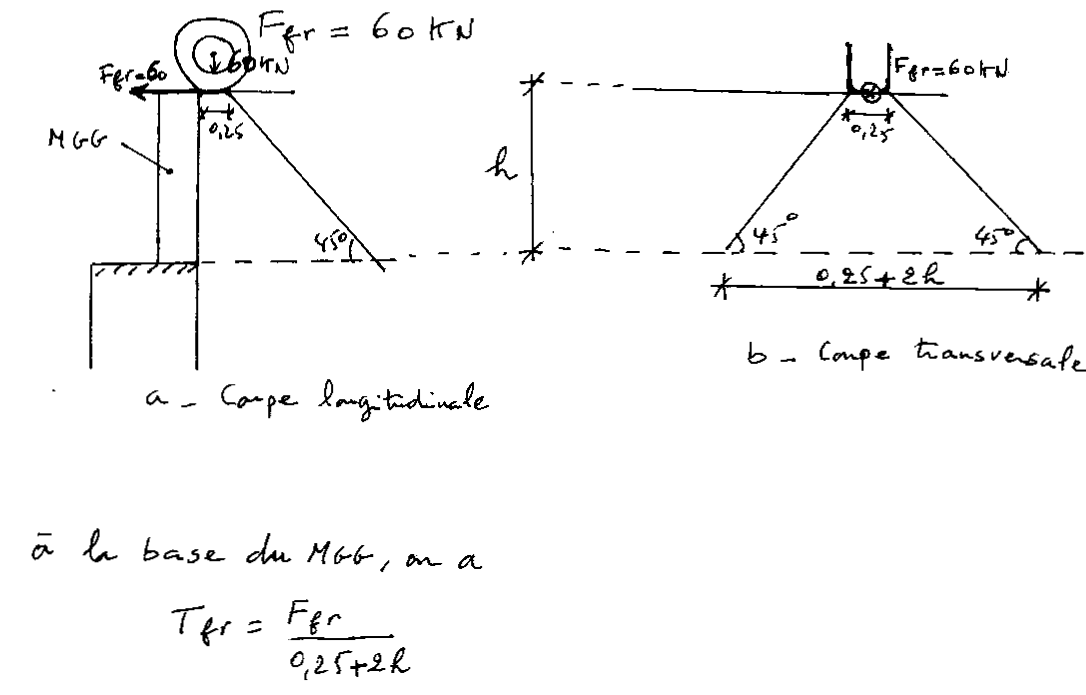 F_fr = 60 KN
60 KN
F_fr=60
0,25
MGG
45°
a - Coupe longitudinale
F_fr=60KN
0,25
h
45°
45°
0,25+2h
b - Coupe transversale
à la base du MGG, on a
T_fr = F_fr / (0,25+2h)